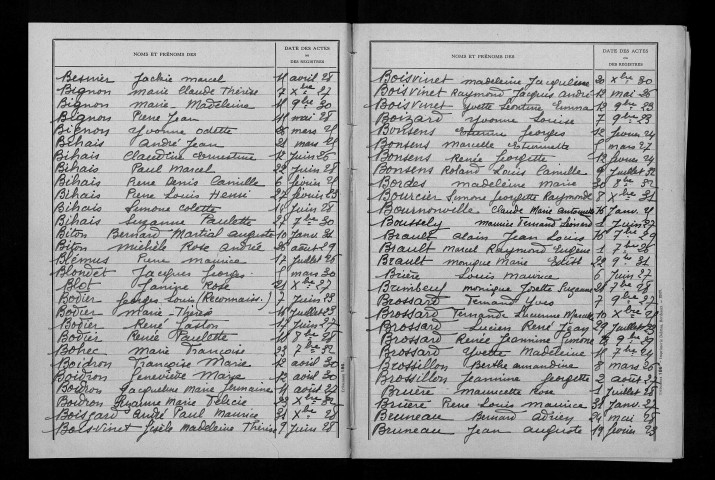 NOMS ET PRÉNOMS DES
DATE DES ACTES
OU
DES REGISTRES
Besnier Jackie Marcel 11 avril 28
Bignon Marie Claude Thérèse 7 Xbre 27
Bignon Marie-Madeleine 11 9bre 30
Bignon Rene Jean 11 mai 28
Bignon Yvonne Odette 26 mars 25
Bihais André Jean 21 mars 25
Bihais Claudine Ernestine 12 Juin 26
Bihais Paul Marcel 22 Juin 28
Bihais Rene Denis Camille 6 février 25
Bihais Rene Louis Henri 27 février 23
Bihais Simone Colette 11 Juin 28
Bihais Suzanne Paulette 27 9bre 30
Biton Bernard Martial Auguste 10 Janv 26
Biton Michèle Rose Andrée 26 août 29
Blémus Rene Maurice 17 Juillet 26
Blondet Jacques Georges 5 mars 30
Blot Janine Rose 21 Xbre 27
Bodier Georges Louis (Reconnaiss.) 7 Juin 28
Bodier Marie-Thérèse Juillet 23
Bodier René Gaston Juin 27
Bodier Renée Paulette 10 8bre 28
Bohec Marie Françoise 23 7bre 32
Boidron Françoise Marie 12 avril 30
Boidron Geneviève Marie 12 avril 30
Boidron Jacqueline Marie Germaine 11 août 27
Boidron Suzanne Marie Délicie 22 Xbre 32
Boissard André Paul Maurice 21 Xbre 28
Boisvinet Gisèle Madeleine Thérèse 9 Juin 28
NOMS ET PRÉNOMS DES
DATE DES ACTES
OU
DES REGISTRES
Boisvinet Madeleine Jacqueline 20 Xbre 30
Boisvinet Raymond Jacques André 12 mai 26
Boisvinet Yvette Léontine Emma 12 9bre 23
Boizard Yvonne Louise 7 9bre 23
Bonsens Etienne Georges 12 février 24
Bonsens Marcelle Etiennette 5 mars 27
Bonsens Renée Georgette 12 février 24
Bonsens Roland Louis Camille 9 Juillet 32
Bordes Madeleine Marie 30 8bre 32
Bourcier Simone Georgette Raymonde 8 Xbre 31
Bournonville Claude Marie Antoinette 16 Janv. 25
Boussely Maurice Fernand Léonard 2 Juin 27
Brault Alain Jean Louis 16 7bre 29
Brault Marcel Raymond Eugène 7bre 26
Brault Monique Marie Edith 22 9bre 31
Brière Louis Maurice 6 Juin 27
Monique Yvette Suzanne 21 7bre 28
Brossard Fernand Yves 7 9bre 27
Brossard Fernande Lucienne Marcelle 10 Xbre 25
Brossard Lucien René Jean 27 Juillet 23
Brossard Renée Jeannine Simone 9bre 27
Brossard Yvette Madeleine 11 7bre 24
Brossillon Berthe Armandine 8 mars 26
Brossillon Jeannine Georgette 2 août 27
Bruère Mauricette Rose 1 Juillet 28
Brière Rene Louis Maurice 31 Janv. 27
Bruneau Bernard Adrien 24 mai 28
Bruneau Jean Auguste 19 février 23